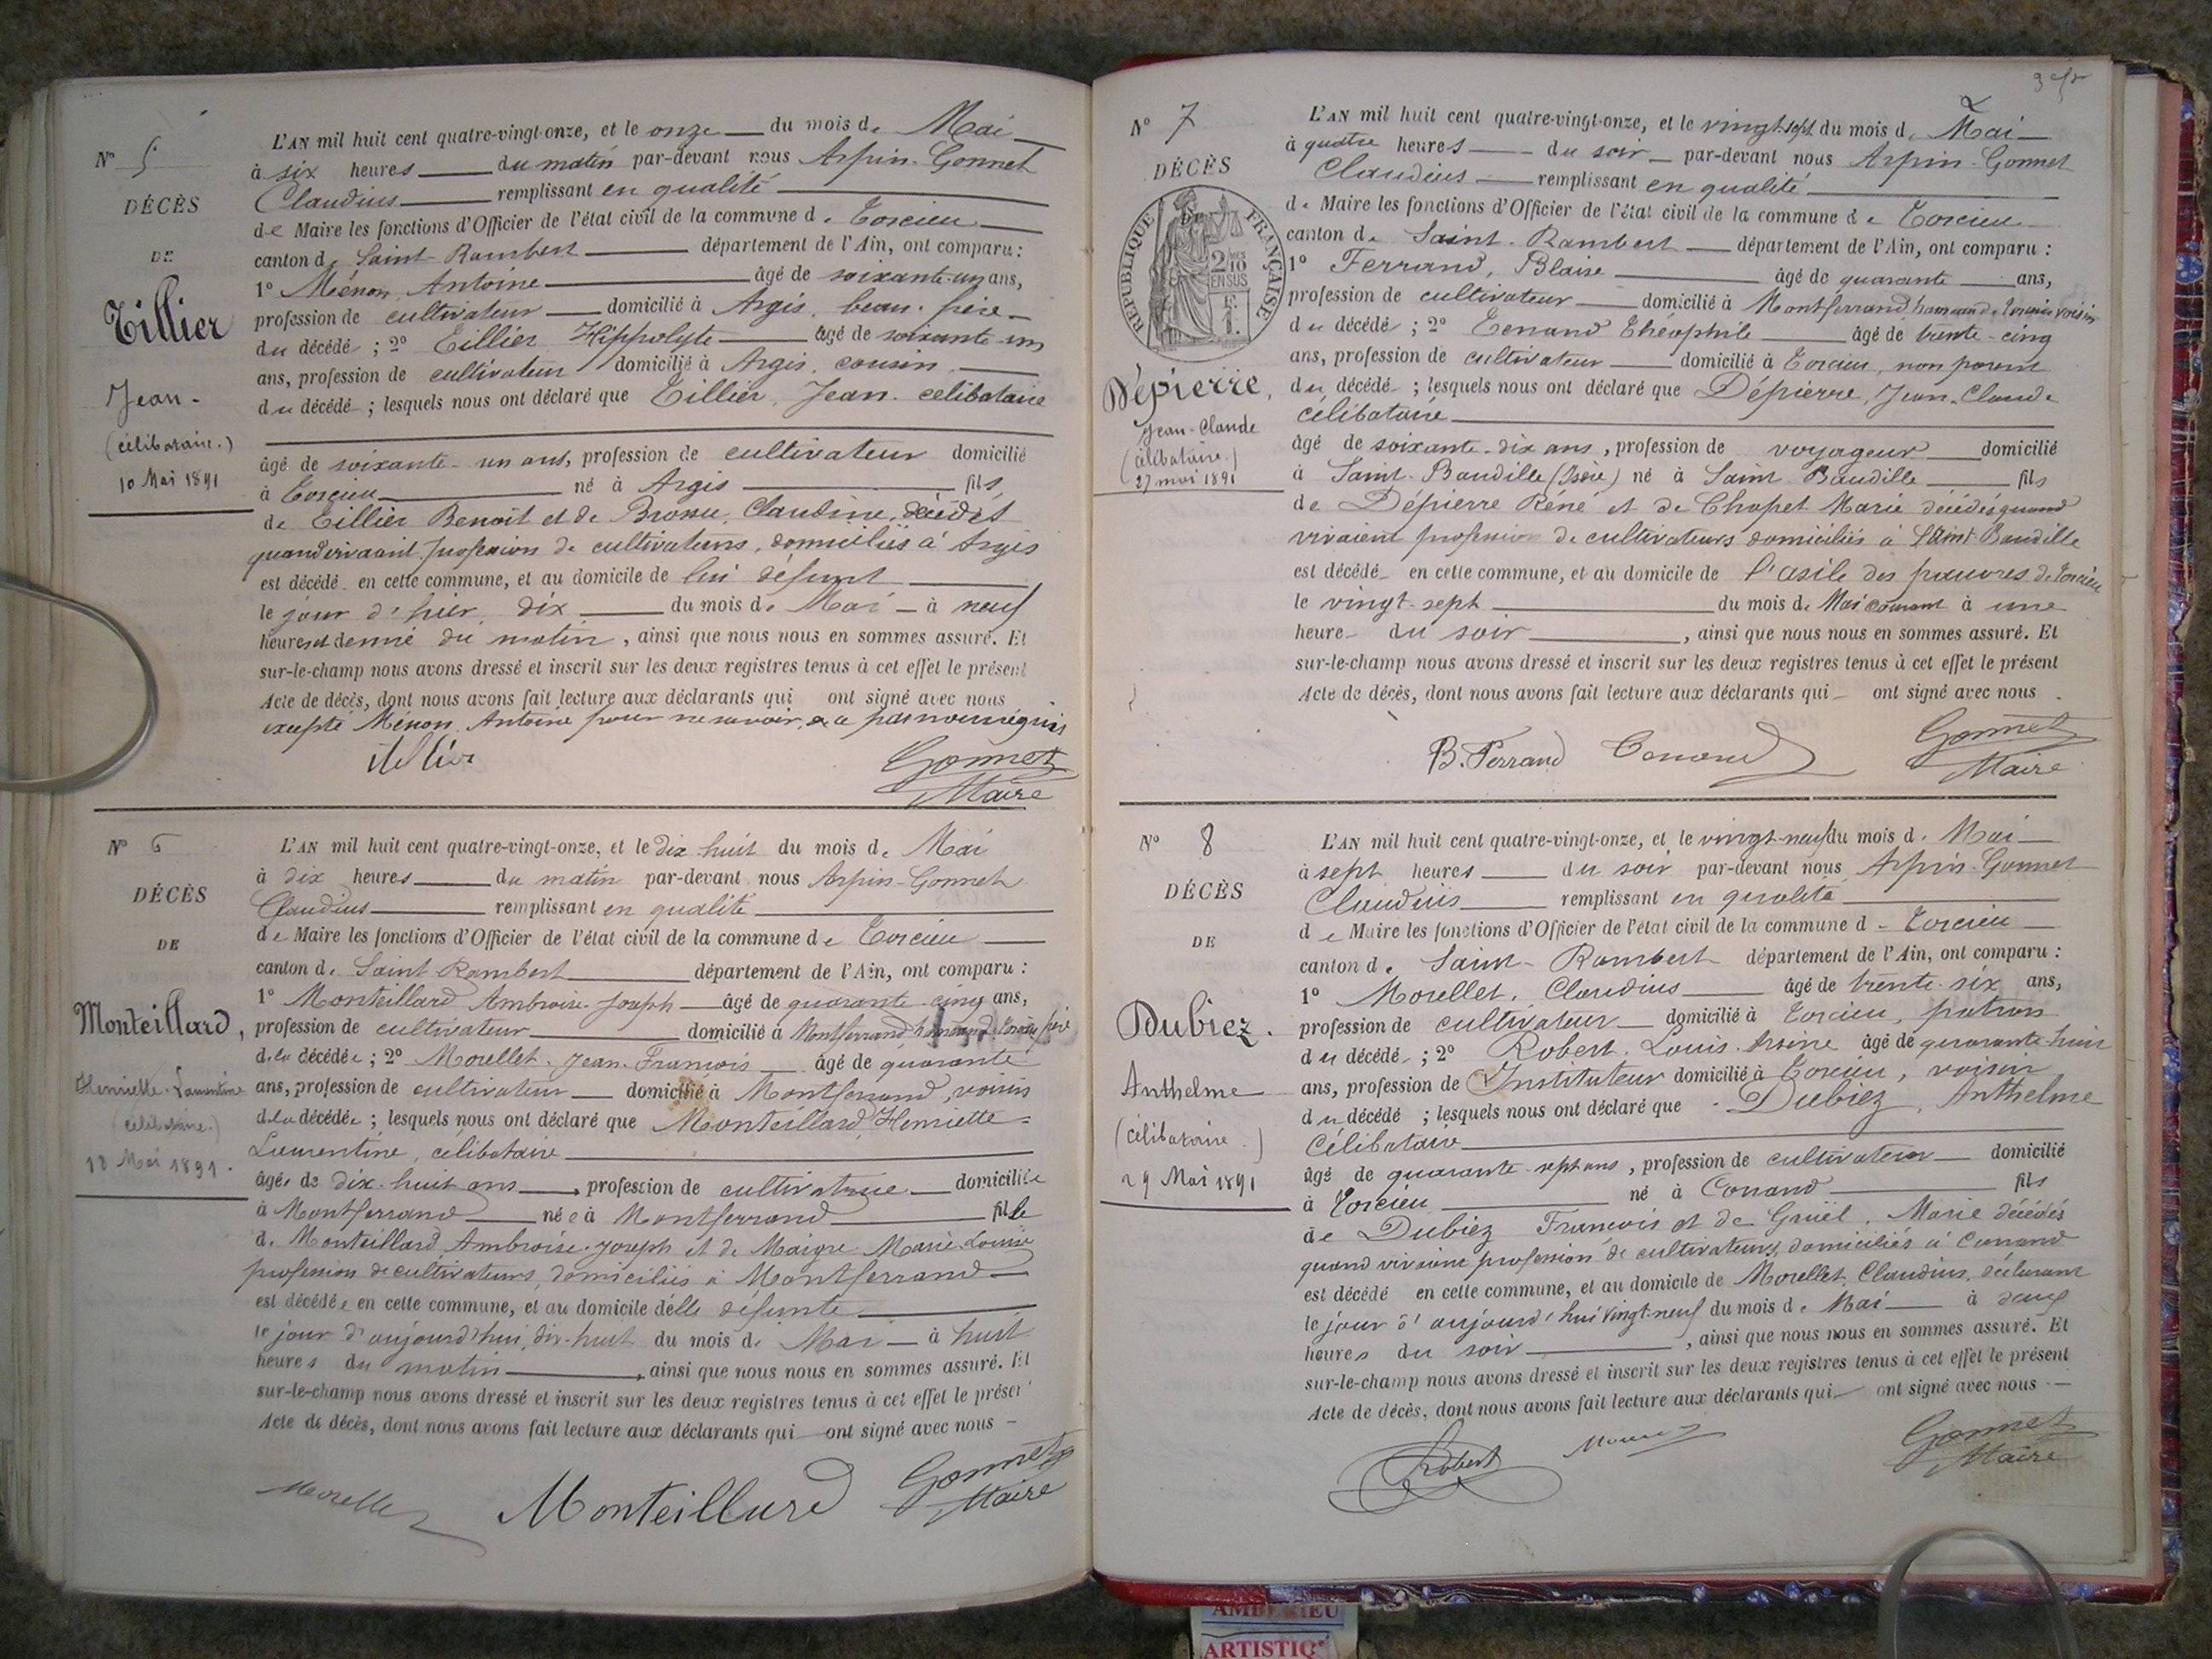 N° 5
DÉCÈS
DE
Tillier
Jean.
(célibataire.)
10 Mai 1891
L'AN mil huit cent quatre-vingt-onze, et le onze du mois de Mai
à six heures du matin par-devant nous Arpin-Gonnet
Claudius remplissant en qualité
de Maire les fonctions d'Officier de l'état civil de la commune de Torcieu
canton de Saint-Rambert département de l'Ain, ont comparu :
1° Ménon, Antoine âgé de soixante-un ans,
profession de cultivateur domicilié à Argis, beau-frère
du décédé ; 2° Tillier Hippolyte âgé de soixante-un
ans, profession de cultivateur domicilié à Argis, cousin
du décédé ; lesquels nous ont déclaré que Tillier, Jean, célibataire
âgé de soixante-un ans, profession de cultivateur domicilié
à Torcieu né à Argis fils
de Tillier Benoît et de Claudine, décédés
quand vivaient profession de cultivateurs, domiciliés à Argis
est décédé en cette commune, et au domicile de lui défunt
le jour d'hier, dix du mois de Mai à neuf
heures et demie du matin, ainsi que nous nous en sommes assuré. Et
sur-le-champ nous avons dressé et inscrit sur les deux registres tenus à cet effet le présent
Acte de décès, dont nous avons fait lecture aux déclarants qui ont signé avec nous
excepté Ménon, Antoine pour ne savoir, de ce par nous requis
Tillier
Gonnet
Maire
N° 6
DÉCÈS
DE
Monteillard,
Henriette-Laurentine
(célibataire.)
18 Mai 1891.
L'AN mil huit cent quatre-vingt-onze, et le dix-huit du mois de Mai
à dix heures du matin par-devant nous Arpin-Gonnet
Claudius remplissant en qualité
de Maire les fonctions d'Officier de l'état civil de la commune de Torcieu
canton de Saint-Rambert département de l'Ain, ont comparu :
1° Monteillard Ambroise-Joseph âgé de quarante-cinq ans,
profession de cultivateur domicilié à Montferrand hameau de Torcieu, père
de la décédée ; 2° Morellet, Jean-François âgé de quarante
ans, profession de cultivateur domicilié à Montferrand, voisin
de la décédée ; lesquels nous ont déclaré que Monteillard, Henriette-
Laurentine, célibataire
âgée de dix-huit ans, profession de cultivatrice domiciliée
à Montferrand née à Montferrand fille
de Monteillard Ambroise-Joseph et de Maigre Marie-Louise
profession de cultivateurs, domiciliés à Montferrand
est décédée en cette commune, et au domicile d'elle défunte
le jour d'aujourd'hui, dix-huit du mois de Mai à huit
heures du matin, ainsi que nous nous en sommes assuré. Et
sur-le-champ nous avons dressé et inscrit sur les deux registres tenus à cet effet le présent
Acte de décès, dont nous avons fait lecture aux déclarants qui ont signé avec nous
Morellet
Monteillard
Gonnet
Maire
N° 7
DÉCÈS
DE
RÉPUBLIQUE FRANÇAISE
2/10 EN SUS
1 F.
Dépierre,
Jean-Claude
(célibataire)
27 mai 1891
L'AN mil huit cent quatre-vingt-onze, et le vingt-sept du mois de Mai
à quatre heures du soir par-devant nous Arpin-Gonnet
Claudius remplissant en qualité
de Maire les fonctions d'Officier de l'état civil de la commune de Torcieu
canton de Saint-Rambert département de l'Ain, ont comparu :
1° Ferrand, Blaise âgé de quarante ans,
profession de cultivateur domicilié à Montferrand hameau de Torcieu voisin
du décédé ; 2° Tenand Théophile âgé de trente-cinq
ans, profession de cultivateur domicilié à Torcieu, non parent
du décédé ; lesquels nous ont déclaré que Dépierre, Jean-Claude
célibataire
âgé de soixante-dix ans, profession de voyageur domicilié
à Saint-Baudille (Isère) né à Saint-Baudille fils
de Dépierre Réné et de Chapet Marie décédés quand
vivaient profession de cultivateurs domiciliés à Saint-Baudille
est décédé en cette commune, et au domicile de l'asile des pauvres de Torcieu
le vingt-sept du mois de Mai courant à une
heure du soir, ainsi que nous nous en sommes assuré. Et
sur-le-champ nous avons dressé et inscrit sur les deux registres tenus à cet effet le présent
Acte de décès, dont nous avons fait lecture aux déclarants qui ont signé avec nous.
B. Ferrand
Tenand
Gonnet
Maire
N° 8
DÉCÈS
DE
Dubiez.
Anthelme
(célibataire.)
29 Mai 1891
L'AN mil huit cent quatre-vingt-onze, et le vingt-neuf du mois de Mai
à sept heures du soir par-devant nous Arpin-Gonnet
Claudius remplissant en qualité
de Maire les fonctions d'Officier de l'état civil de la commune de Torcieu
canton de Saint-Rambert département de l'Ain, ont comparu :
1° Morellet, Claudius âgé de trente-six ans,
profession de cultivateur domicilié à Torcieu, patron
du décédé ; 2° Robert, Louis-Arsine âgé de quarante-huit
ans, profession de Instituteur domicilié à Torcieu, voisin
du décédé ; lesquels nous ont déclaré que Dubiez, Anthelme
Célibataire
âgé de quarante-sept ans, profession de cultivateur domicilié
à Torcieu né à Conand fils
de Dubiez François et de Gruel, Marie décédés
quand vivaient profession de cultivateurs, domiciliés à Conand
est décédé en cette commune, et au domicile de Morellet, Claudius, déclarant
le jour d'aujourd'hui vingt-neuf du mois de Mai à deux
heures du soir, ainsi que nous nous en sommes assuré. Et
sur-le-champ nous avons dressé et inscrit sur les deux registres tenus à cet effet le présent
Acte de décès, dont nous avons fait lecture aux déclarants qui ont signé avec nous
Robert
Gonnet
Maire
AMBÉRIEU
ARTISTIQ